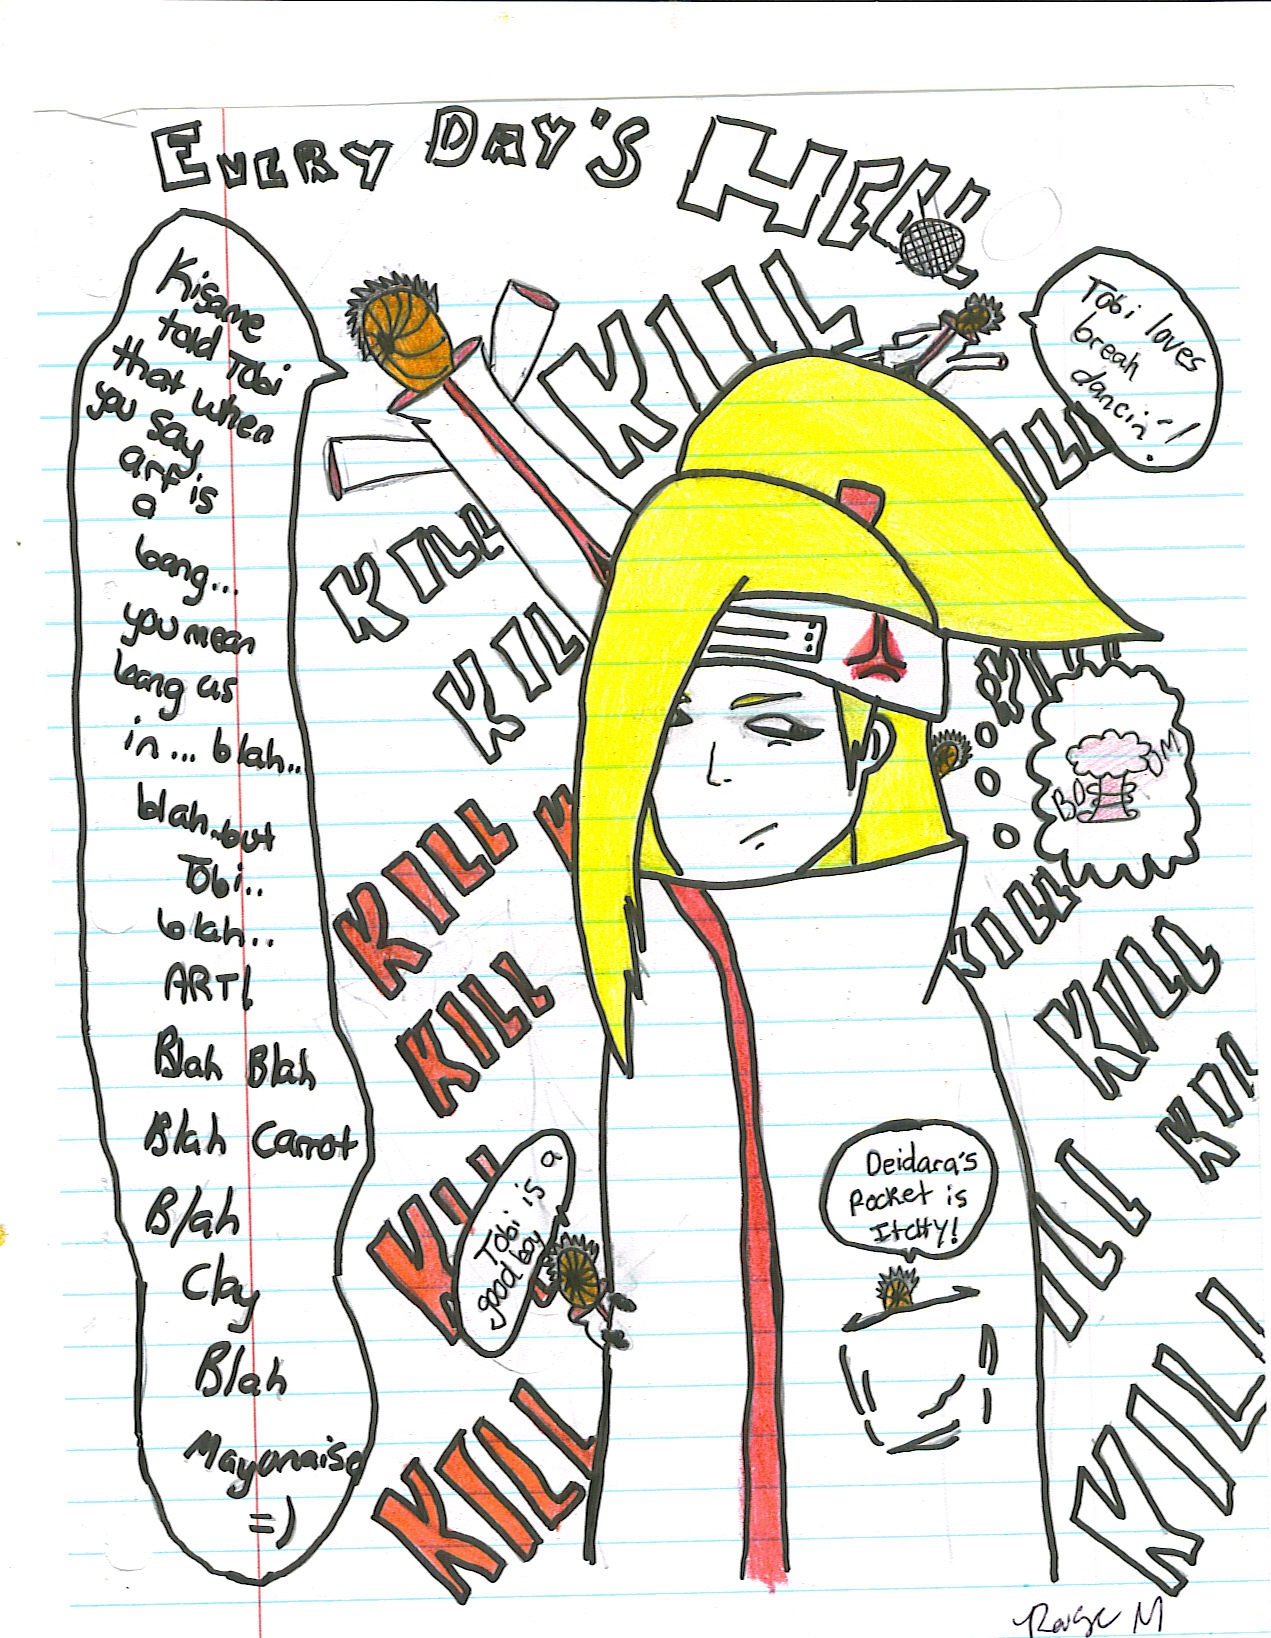 EVERY DAY'S HELL
Kisame
told Tobi
that when
you say
art is
a
bang...
you mean
bang us
in... blah..
blah..but
Tobi..
blah..
ART!
Blah Blah
Blah Carrot
Blah
Clay
Blah
Mayonaise
=)
KILL
Tobi loves
break
dancin~!
KILL
KILL
KILL
BOOM
KILL
KILL
KILL
KILL
KILL
KILL
KILL
Tobi is a
good boy
Deidara's
Pocket is
Itchy!
KILL
KILL